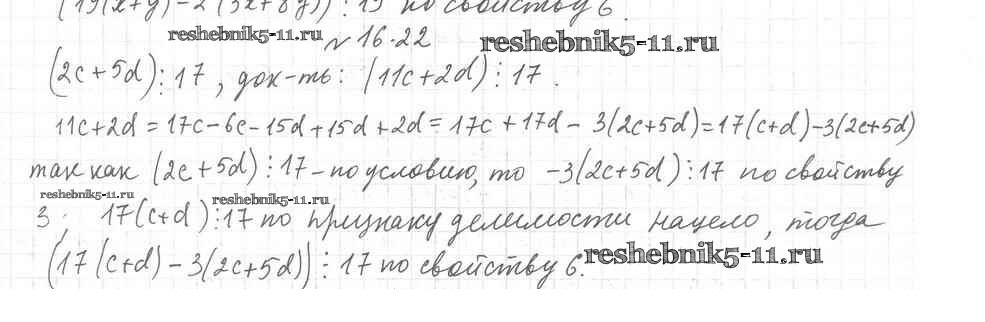 (19(x+y)-2(3x+8y))⋮19 по свойству 6.
reshebnik5-11.ru № 16.22 reshebnik5-11.ru
(2c+5d)⋮17, док-ть: (11c+2d)⋮17.
11c+2d = 17c-6c-15d+15d+2d = 17c+17d-3(2c+5d)=17(c+d)-3(2c+5d)
так как (2c+5d)⋮17-по условию, то -3(2c+5d)⋮17 по свойству
reshebnik5-11.ru reshebnik5-11.ru
3; 17(c+d)⋮17 по признаку делимости нацело, тогда
(17(c+d)-3(2c+5d))⋮17 по свойству 6. reshebnik5-11.ru